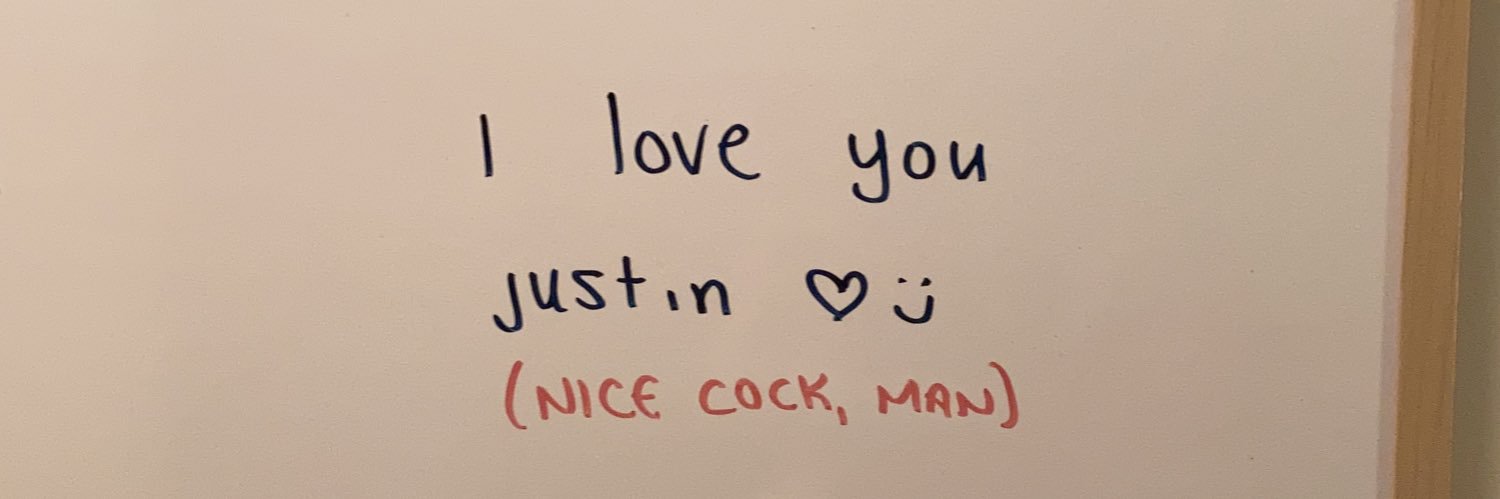 I love you
justin ♡ :)
(NICE COCK, MAN)